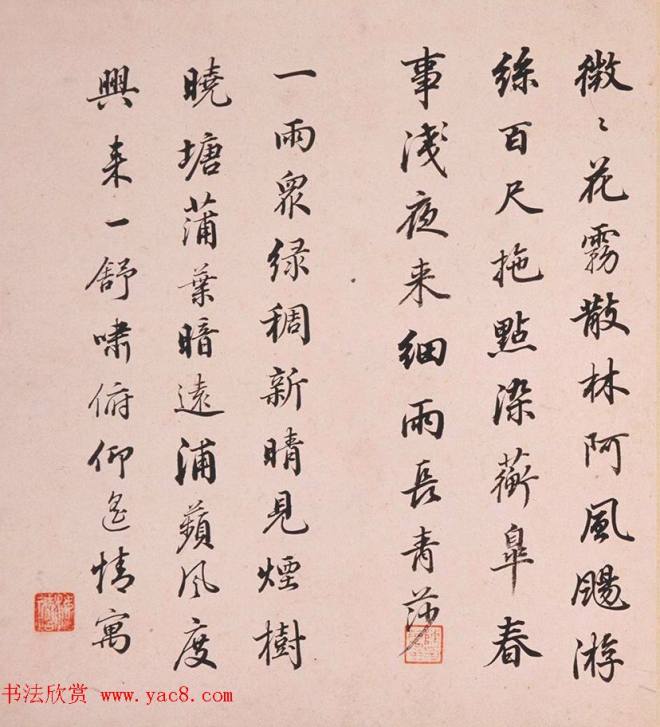 微〻花霧散林阿風颺游
絲百尺拖點染蘅皐春
事淺夜来細雨長青莎
一雨眾绿稠新晴見煙樹
曉塘蒲葉暗遠浦蘋风度
興来一舒嘯俯仰遙情寓
书法欣赏 www.yac8.com